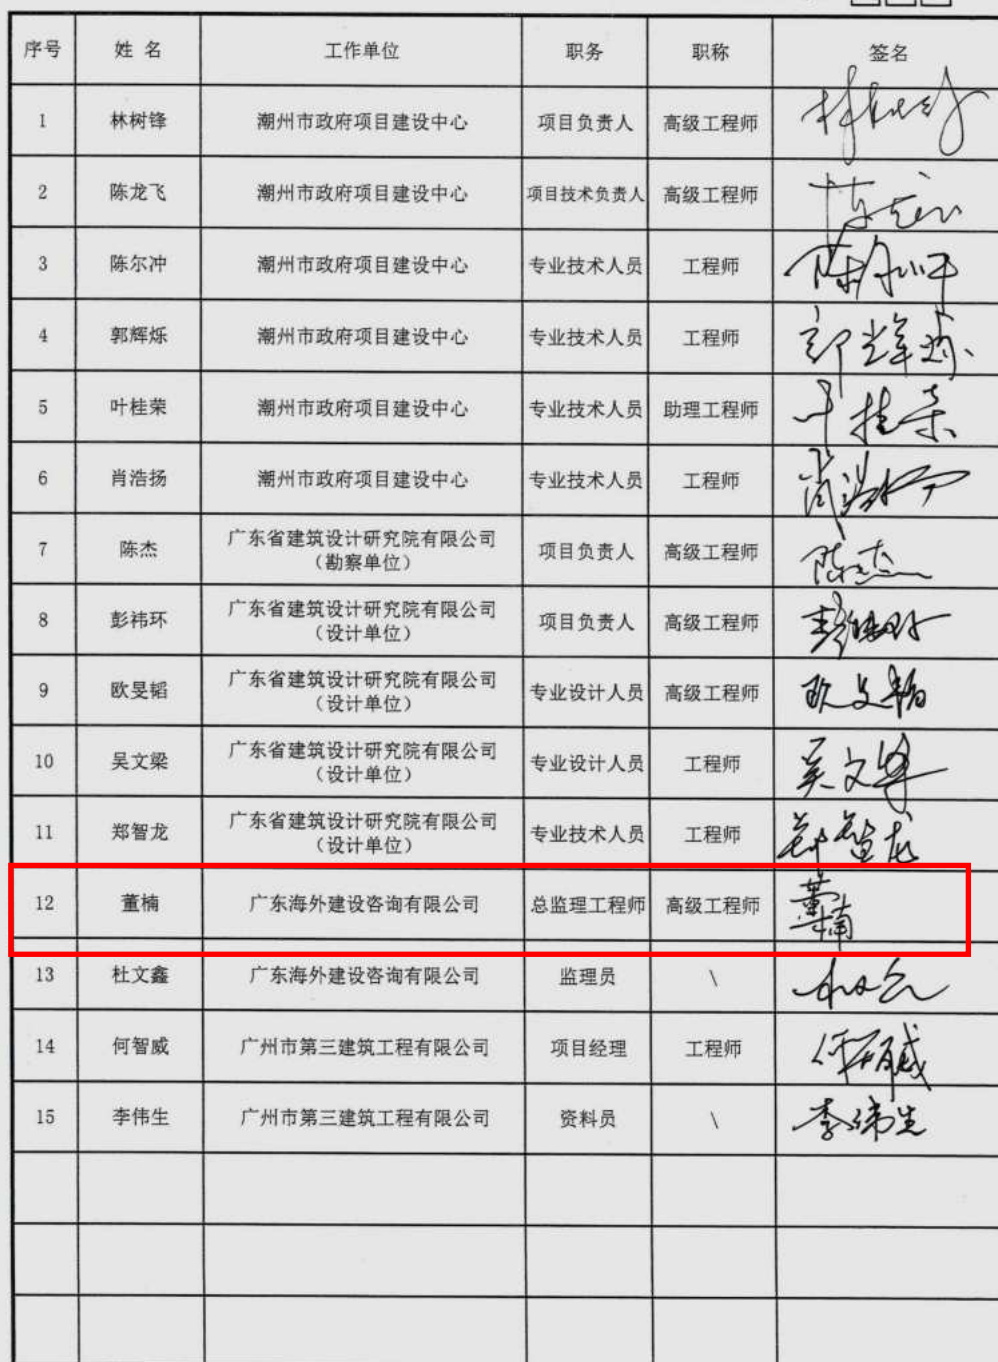 序号 姓名 工作单位 职务 职称 签名
1 林树锋 潮州市政府项目建设中心 项目负责人 高级工程师 林树锋
2 陈龙飞 潮州市政府项目建设中心 项目技术负责人 高级工程师
3 陈尔冲 潮州市政府项目建设中心 专业技术人员 工程师 陈尔冲
4 郭辉烁 潮州市政府项目建设中心 专业技术人员 工程师 郭辉烁
5 叶桂荣 潮州市政府项目建设中心 专业技术人员 助理工程师 叶桂荣
6 肖浩扬 潮州市政府项目建设中心 专业技术人员 工程师 肖浩扬
7 陈杰 广东省建筑设计研究院有限公司 项目负责人 高级工程师 陈杰
（勘察单位）
8 彭祎环 广东省建筑设计研究院有限公司 项目负责人 高级工程师 彭祎环
（设计单位）
9 欧旻韬 广东省建筑设计研究院有限公司 专业设计人员 高级工程师 欧旻韬
（设计单位）
10 吴文梁 广东省建筑设计研究院有限公司 专业设计人员 工程师 吴文梁
（设计单位）
11 郑智龙 广东省建筑设计研究院有限公司 专业技术人员 工程师 郑智龙
（设计单位）
12 董楠 广东海外建设咨询有限公司 总监理工程师 高级工程师 董楠
13 杜文鑫 广东海外建设咨询有限公司 监理员 \
14 何智威 广州市第三建筑工程有限公司 项目经理 工程师 何智威
15 李伟生 广州市第三建筑工程有限公司 资料员 \ 李伟生